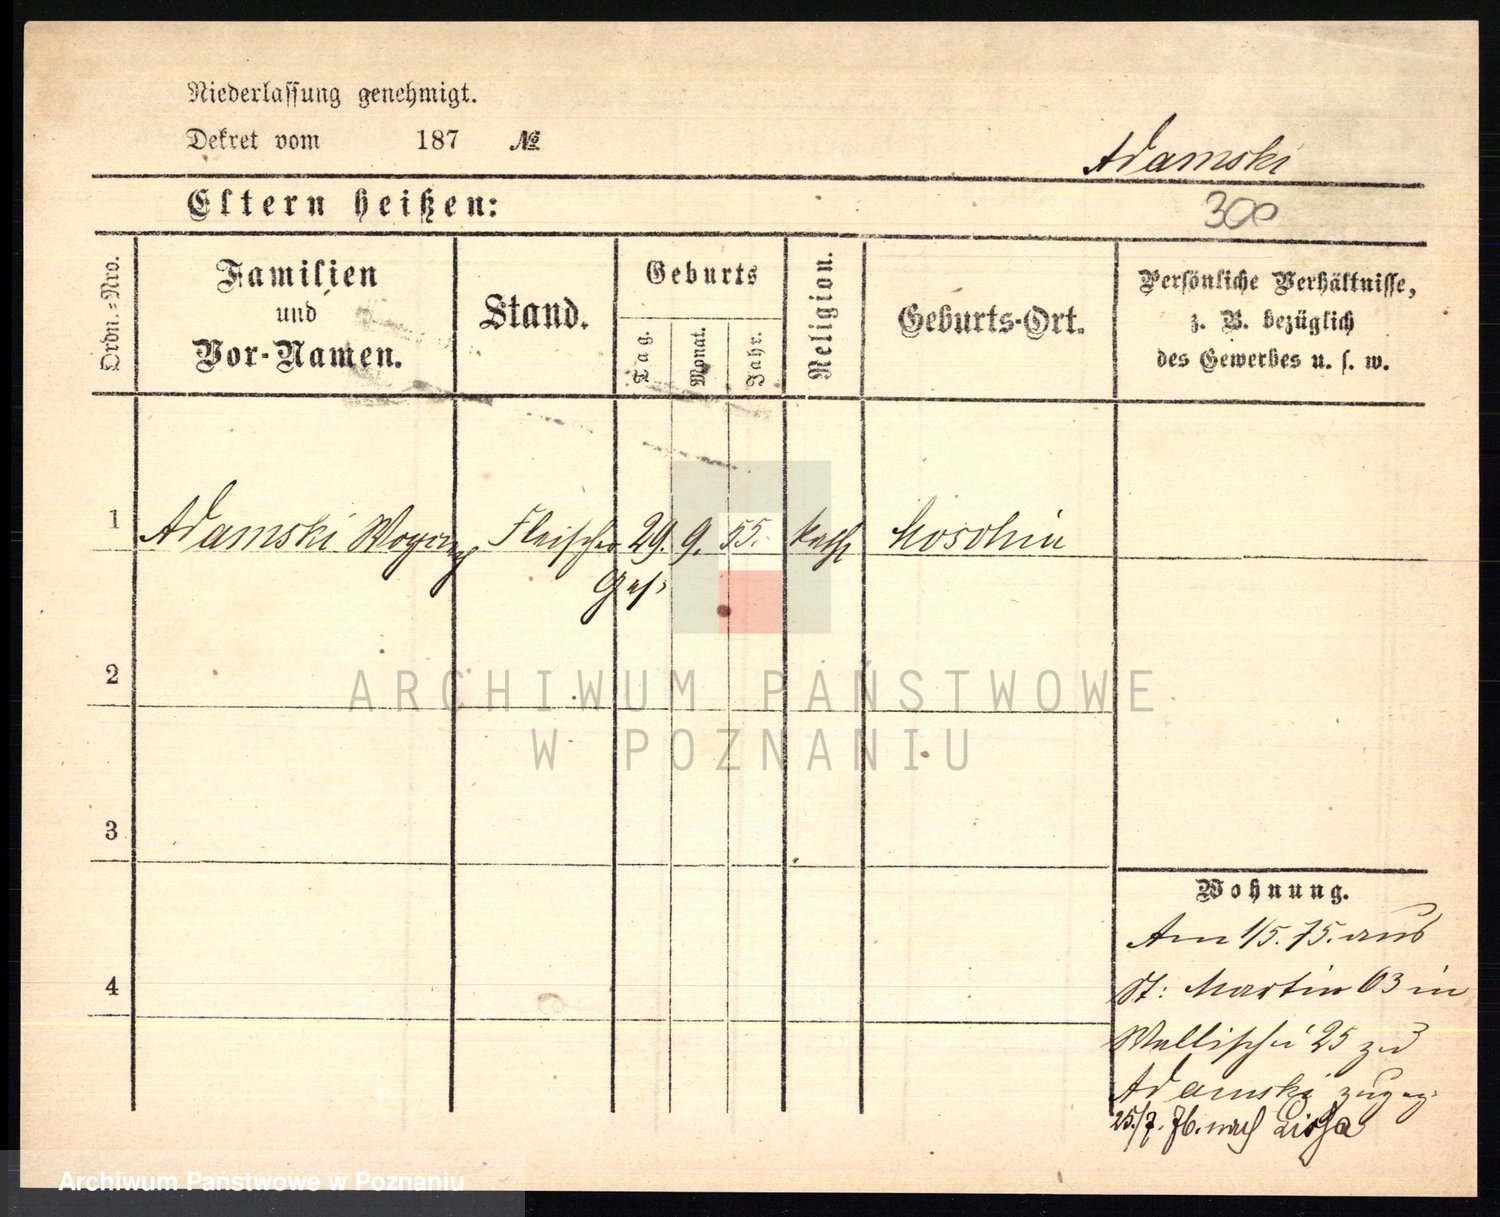 Niederlassung genehmigt.
Dekret vom 187 №
Adamski
Eltern heißen:
300
Ordn.=Nro.
Familien
und
Vor-Namen.
Stand.
Geburts
Tag.
Monat.
Jahr.
Religion.
Geburts-Ort.
Persönliche Verhältnisse,
z. B. bezüglich
des Gewerbes u. s. w.
1 Adamski Fleischer 29. 9. 55. kath Moschin
Ges:
2
3
4
Wohnung.
Am 1/5. 75. aus
St: Martin 63 in
Wallischei 25 zu
Adamski zugez:
25/7. 76. nach Lissa
ARCHIWUM PAŃSTWOWE
W POZNANIU
Archiwum Państwowe w Poznaniu